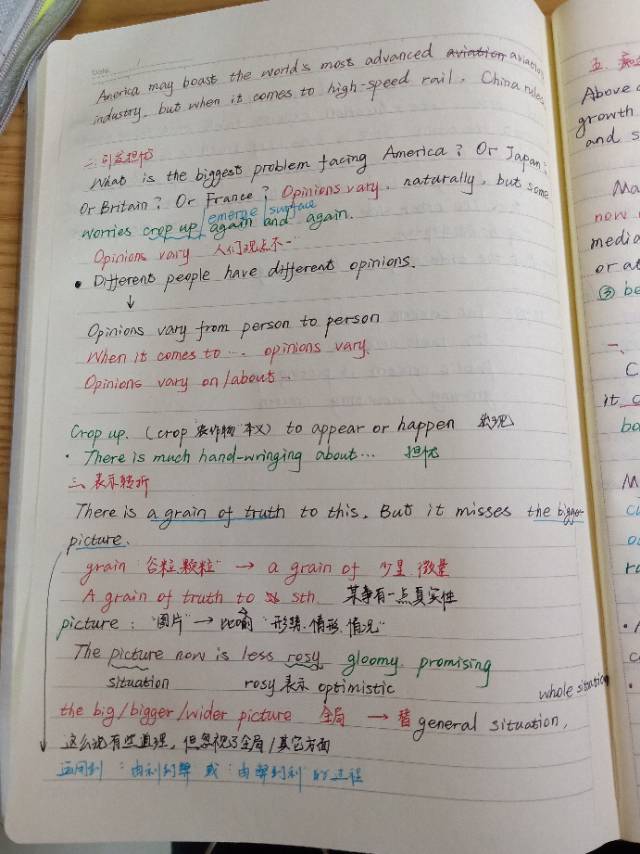 Date
America may boast the world's most advanced aviation aviation
industry, but when it comes to high-speed rail, China rules
二.引发担忧
What is the biggest problem facing America? Or Japan?
Or Britain? Or France? Opinions vary, naturally, but some
emerge / surface
worries crop up again and again.
Opinions vary 人们观点不一
• Different people have different opinions.
↓
Opinions vary from person to person
When it comes to … opinions vary.
Opinions vary on/about…
Crop up. (crop 农作物 本义) to appear or happen 出现
· There is much hand-wringing about… 担忧
三.表示转折
There is a grain of truth to this. But it misses the bigger
picture.
grain "谷粒.颗粒" → a grain of 少量 微量
A grain of truth to sth. 某事有一点真实性
picture: "图片" → 比喻 "形势.情形.情况"
The picture now is less rosy gloomy. promising
situation rosy 表示 optimistic
whole situation
the big/bigger/wider picture 全局 → 替 general situation,
这么说有些道理, 但忽视了全局/其它方面
运用到: 由利到弊 或: 由弊到利 的过程
五.
Above
growth
and s
Ma
now
media
or at
③ be
一、
C
it c
ba
M